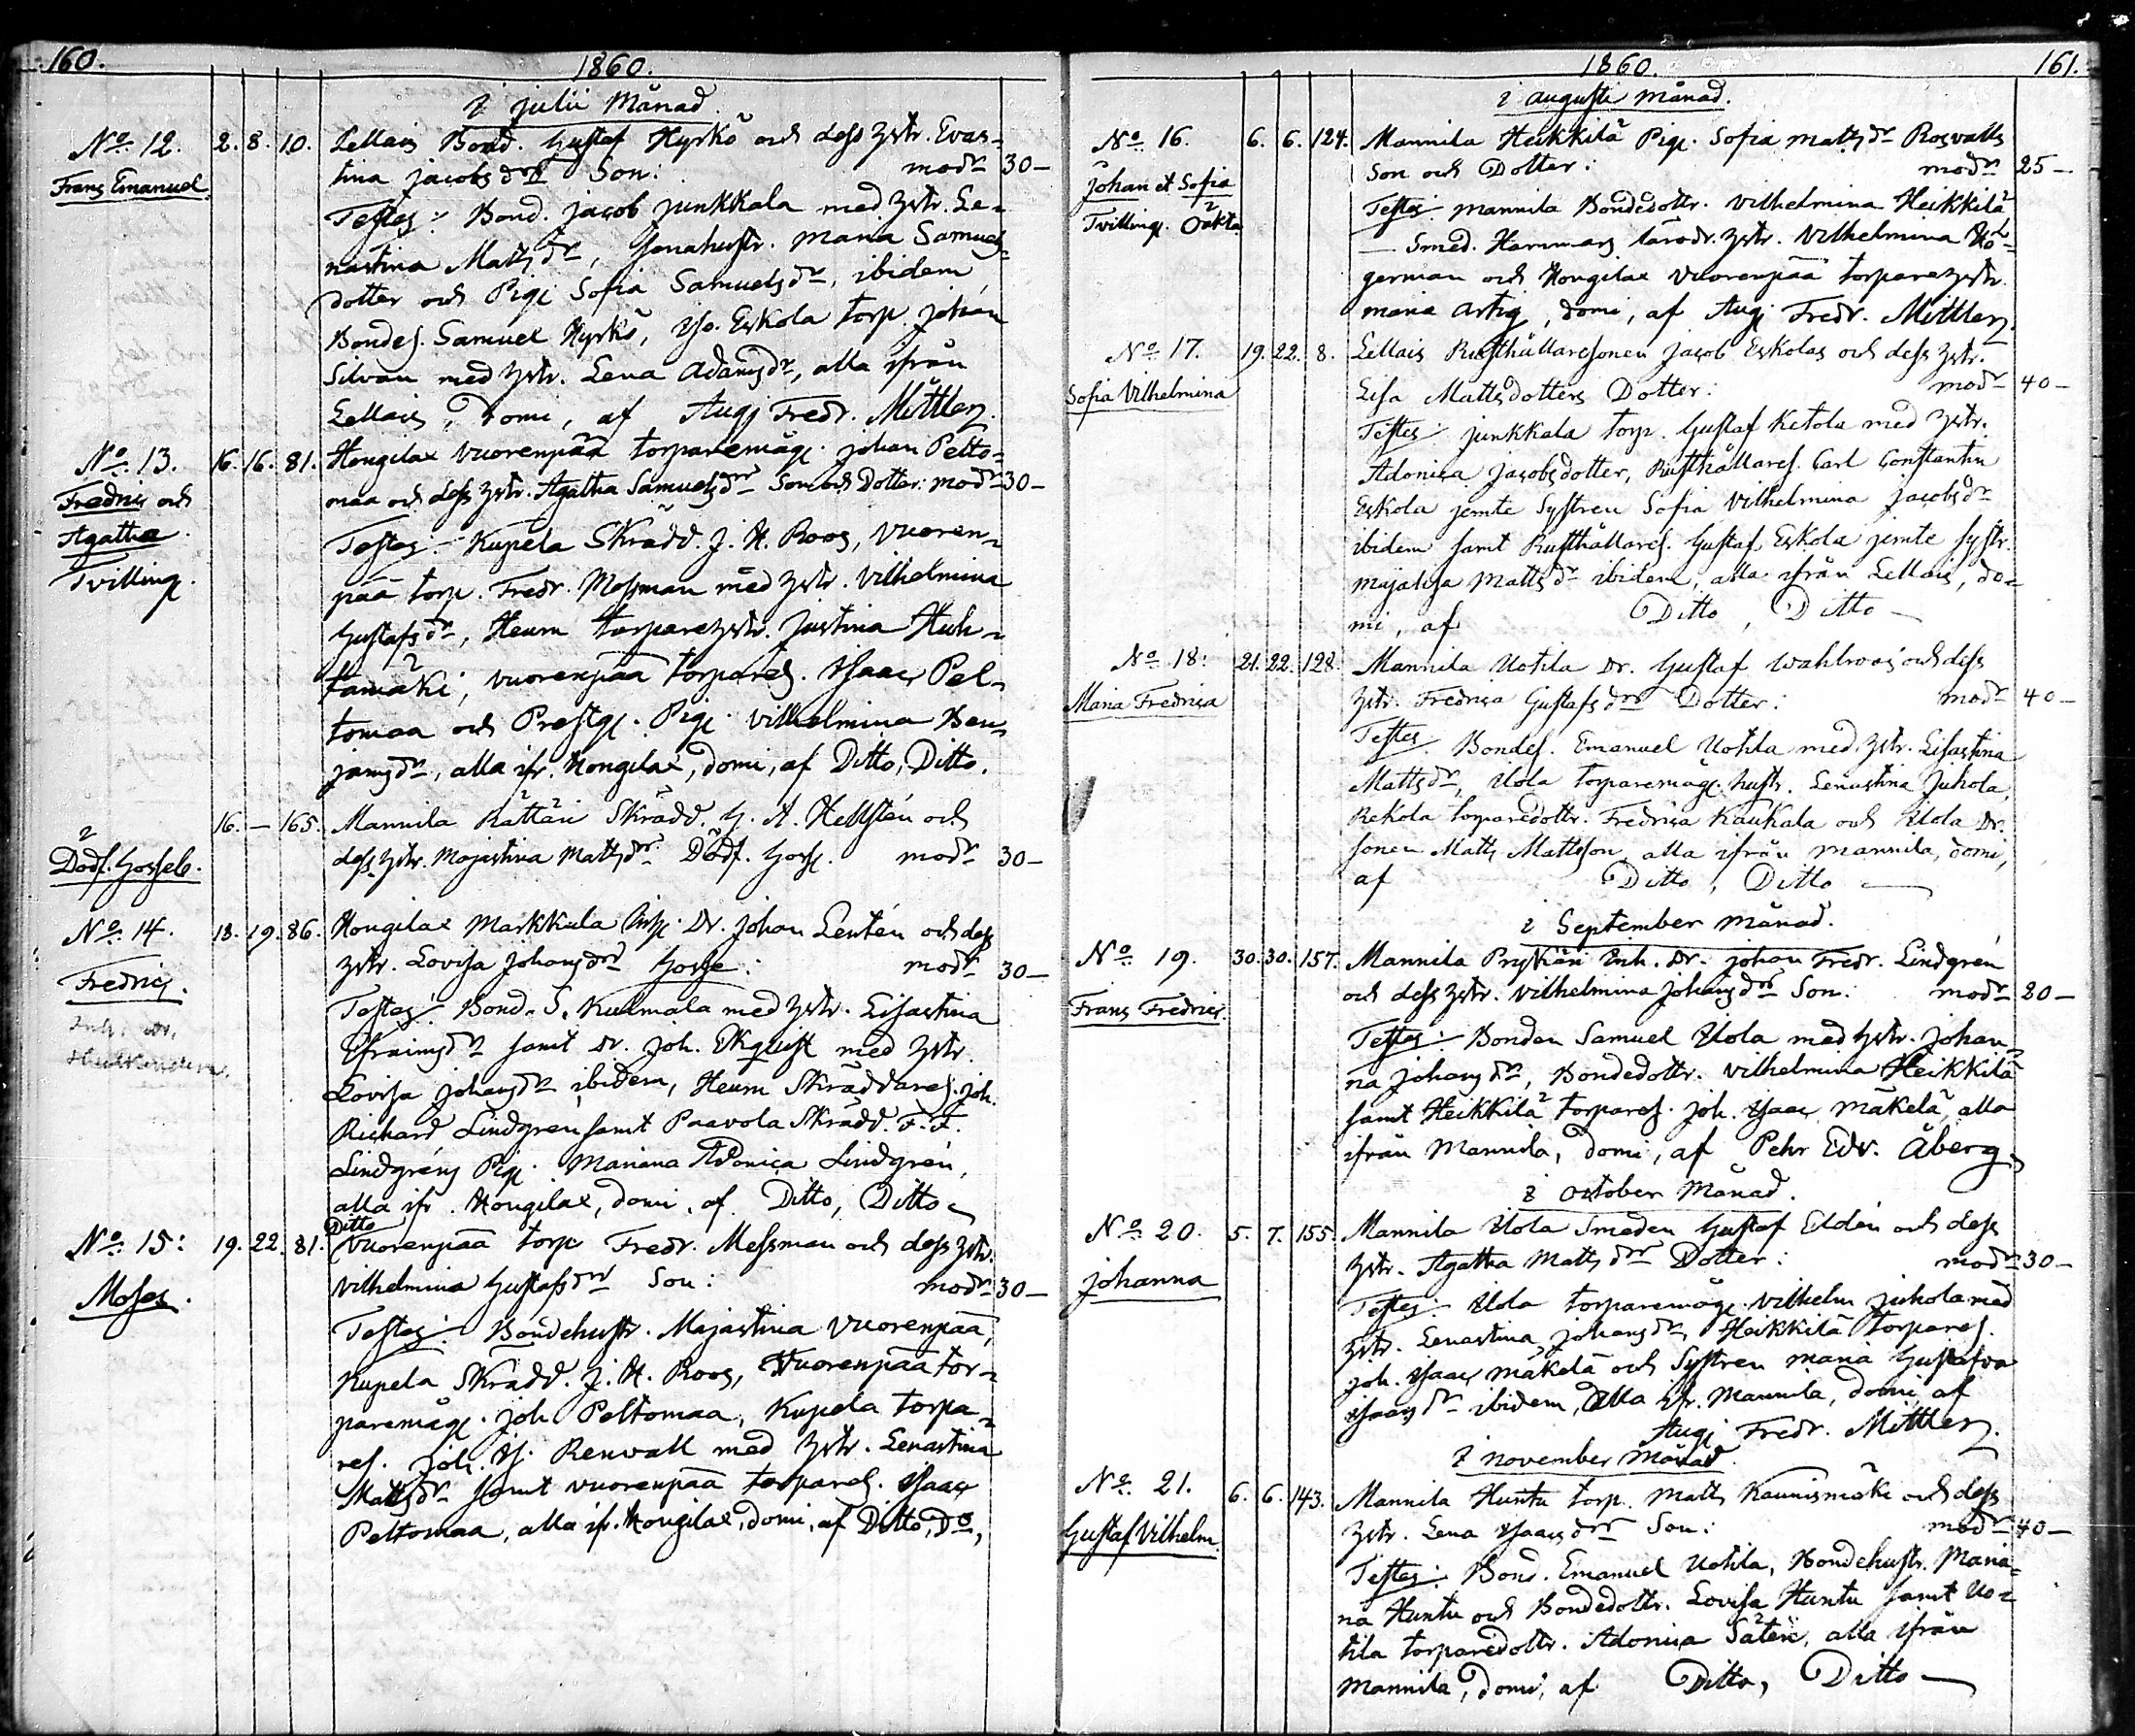 160.
1860.
i Julii Månad.
No. 12. 2. 8. 10. Lellais Bond. Gustaf Hyrkö och dess hstr. Evas-
Frans Emanuel tina Jacobsdrs Son: modr 30—
Testes: Bond. Jacob Junkkala med hstr. Le-
nastina Mattsdr, hustr. Maria Samuels-
dotter och Pig. Sofia Samuelsdr, ibidem
Bondes. Samuel Hyrkö, Eskola torp. Johan
Silvan med hstr. Lena Adamsdr, alla ifrån
Lellais, domi, af Aug. Fredr. Mittler.
No. 13. 16. 16. 81. Hongilax Vuorenpää torparemåg. Johan Pelto-
Fredric och maa och dess hstr. Agatha Samuelsdrs Son och Dotter: modr 30—
Agatha. Testes: Kupela Skrädd. J. H. Roos, Vuoren-
Tvilling. pää torp. Fredr. Messman med hstr. Vilhelmina
Gustafsdr, Heum torparehstr. Justina Huh-
tamäki, Vuorenpää torpares. Isaac Pel-
tomaa och Prestg. Pig. Vilhelmina Ben-
jamsdr, alla ifr. Hongilax, domi, af Ditto, Ditto.
16. — 165. Mannila Rättäri Skrädd. G. A. Hellstén och
Dödf. Gosseb. dess hstr. Majastina Mattsdrs Dödf. Goss. modr 30—
No. 14. 18. 19. 86. Hongilax Markkula Inh. Dr. Johan Lentén och dess
Fredric. hstr. Lovisa Johansdrs Gosse: modr 30—
Testes: Bond. S. Kulmala med hstr. Lisastina
Efraimsdr samt Dr. Joh. Ekquist med hstr.
Lovisa Johansdr ibidem, Heum Skräddares. Joh.
Richard Lindgrén samt Paavola Skrädd. F. F.
Lindgréns Pig. Mariana Adonica Lindgrén,
alla ifr. Hongilax, domi, af Ditto, Ditto
Ditto
No. 15: 19. 22. 81. Vuorenpää torp Fredr. Messman och dess hstr.
Moses. Vilhelmina Gustafsdrs Son: modr 30—
Testes: Bondehustr. Majastina Vuorenpää,
Kupela Skrädd. J. H. Roos, Vuorenpää tor-
paremåg. Joh Peltomaa, Kupela torpa-
res. Joh. Is. Renvall med hstr. Lenastina
Mattsdr samt Vuorenpää torpares. Isaac
Peltomaa, alla ifr. Hongilax, domi, af Ditto, Do,
1860. 161.
i Augusti Månad.
No. 16. 6. 6. 124. Mannila Heikkilä Pig. Sofia Mattsdr Rosvalls
Johan et Sofia Son och Dotter: modr 25—
Tvilling. Oäkta. Testes Mannila Bondedottr. Vilhelmina Heikkilä
— Smed. Hammars lärodr. hstr. Vilhelmina Hö-
german och Hongilax Vuorenpää torparehstr.
Maria Artig, domi, af Aug. Fredr. Mittler.
No. 17. 19. 22. 8. Lellais Rusthållaresonen Jacob Eskolas och dess hstr.
Sofia Vilhelmina Lisa Mattsdotters Dotter: modr 40—
Testes: Junkkala torp. Gustaf Ketola med hstr.
Adonica Jacobsdotter, Rusthållares. Carl Constantin
Eskola jemte Systren Sofia Vilhelmina Jacobsdr
ibidem samt Rusthållares. Gustaf Eskola jemte systr.
Majalisa Mattsdr ibidem, alla ifrån Lellais, do-
mi, af Ditto, Ditto —
No. 18: 21. 22. 128. Mannila Uotila Dr. Gustaf Wahlroos och dess
Maria Fredrica hstr. Fredrica Gustafsdrs Dotter: modr 40—
Testes. Bondes. Emanuel Uotila med hstr. Lisastina
Mattsdr, Uola torparemåg. hustr. Lenastina Juhola,
Rekola torparedottr. Fredrica Kaukala och Uola Dr.
sonen Matts Mattsson, alla ifrån Mannila, domi,
af Ditto, Ditto —
i September Månad.
No. 19. 30. 30. 157. Mannila Prykäri Inh. Dr. Johan Fredr. Lindgrén
Frans Fredric. och dess hstr. Vilhelmina Johansdrs Son: modr 20—
Testes: Bonden Samuel Uola med hstr. Johan-
na Johansdr, Bondedottr. Vilhelmina Heikkilä
samt Heikkilä torpares. Joh. Isaac Mäkelä, alla
ifrån Mannila, domi, af Pehr Edv. Åberg
i October Månad.
No. 20. 5. 7. 155. Mannila Uola Smeden Gustaf Eldén och dess
Johanna hstr. Agatha Mattsdrs Dotter: modr 30—
Testes: Uola torparemåg. Vilhelm Juhola med
hstr. Lenastina Johansdr, Heikkilä torpares.
Joh. Isaac Mäkelä och Systren Maria Gustafva
Isaacsdr ibidem, Alla ifr. Mannila, domi af
Aug. Fredr. Mittler.
i November Månad.
No. 21. 6. 6. 143. Mannila Huntu torp. Matts Kaunismäki och dess
Gustaf Vilhelm. hstr. Lena Isaacsdrs Son: modr 40—
Testes: Bond. Emanuel Uotila, Bondehustr. Maria-
na Huntu och Bondedottr. Lovisa Huntu samt Uo-
tila torparedottr. Adonica Säteri, alla ifrån
Mannila, domi, af Ditto, Ditto —